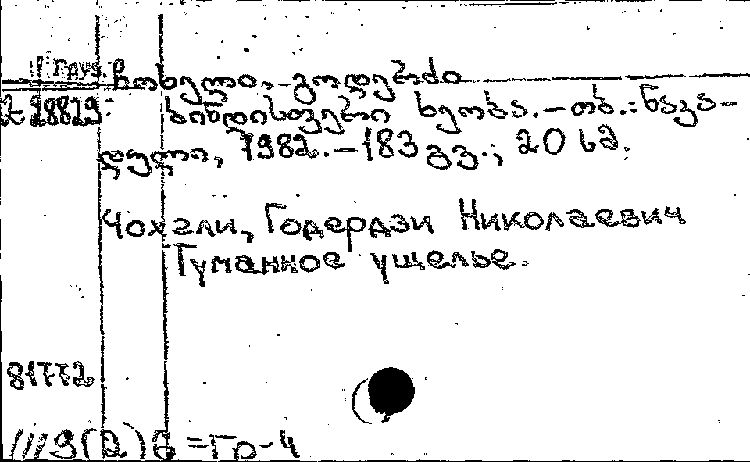 II Груз. р
ჩოხელი, გოდერძი
2-28829: ბინდისფერი ხეობა. – თბ.: ნაკა-
დული, 1982. – 183 გვ.; 20 სმ.
Чохели, Годердзи Николаевич
Туманное ущелье.
81772
///9(2)6 = Гр-4